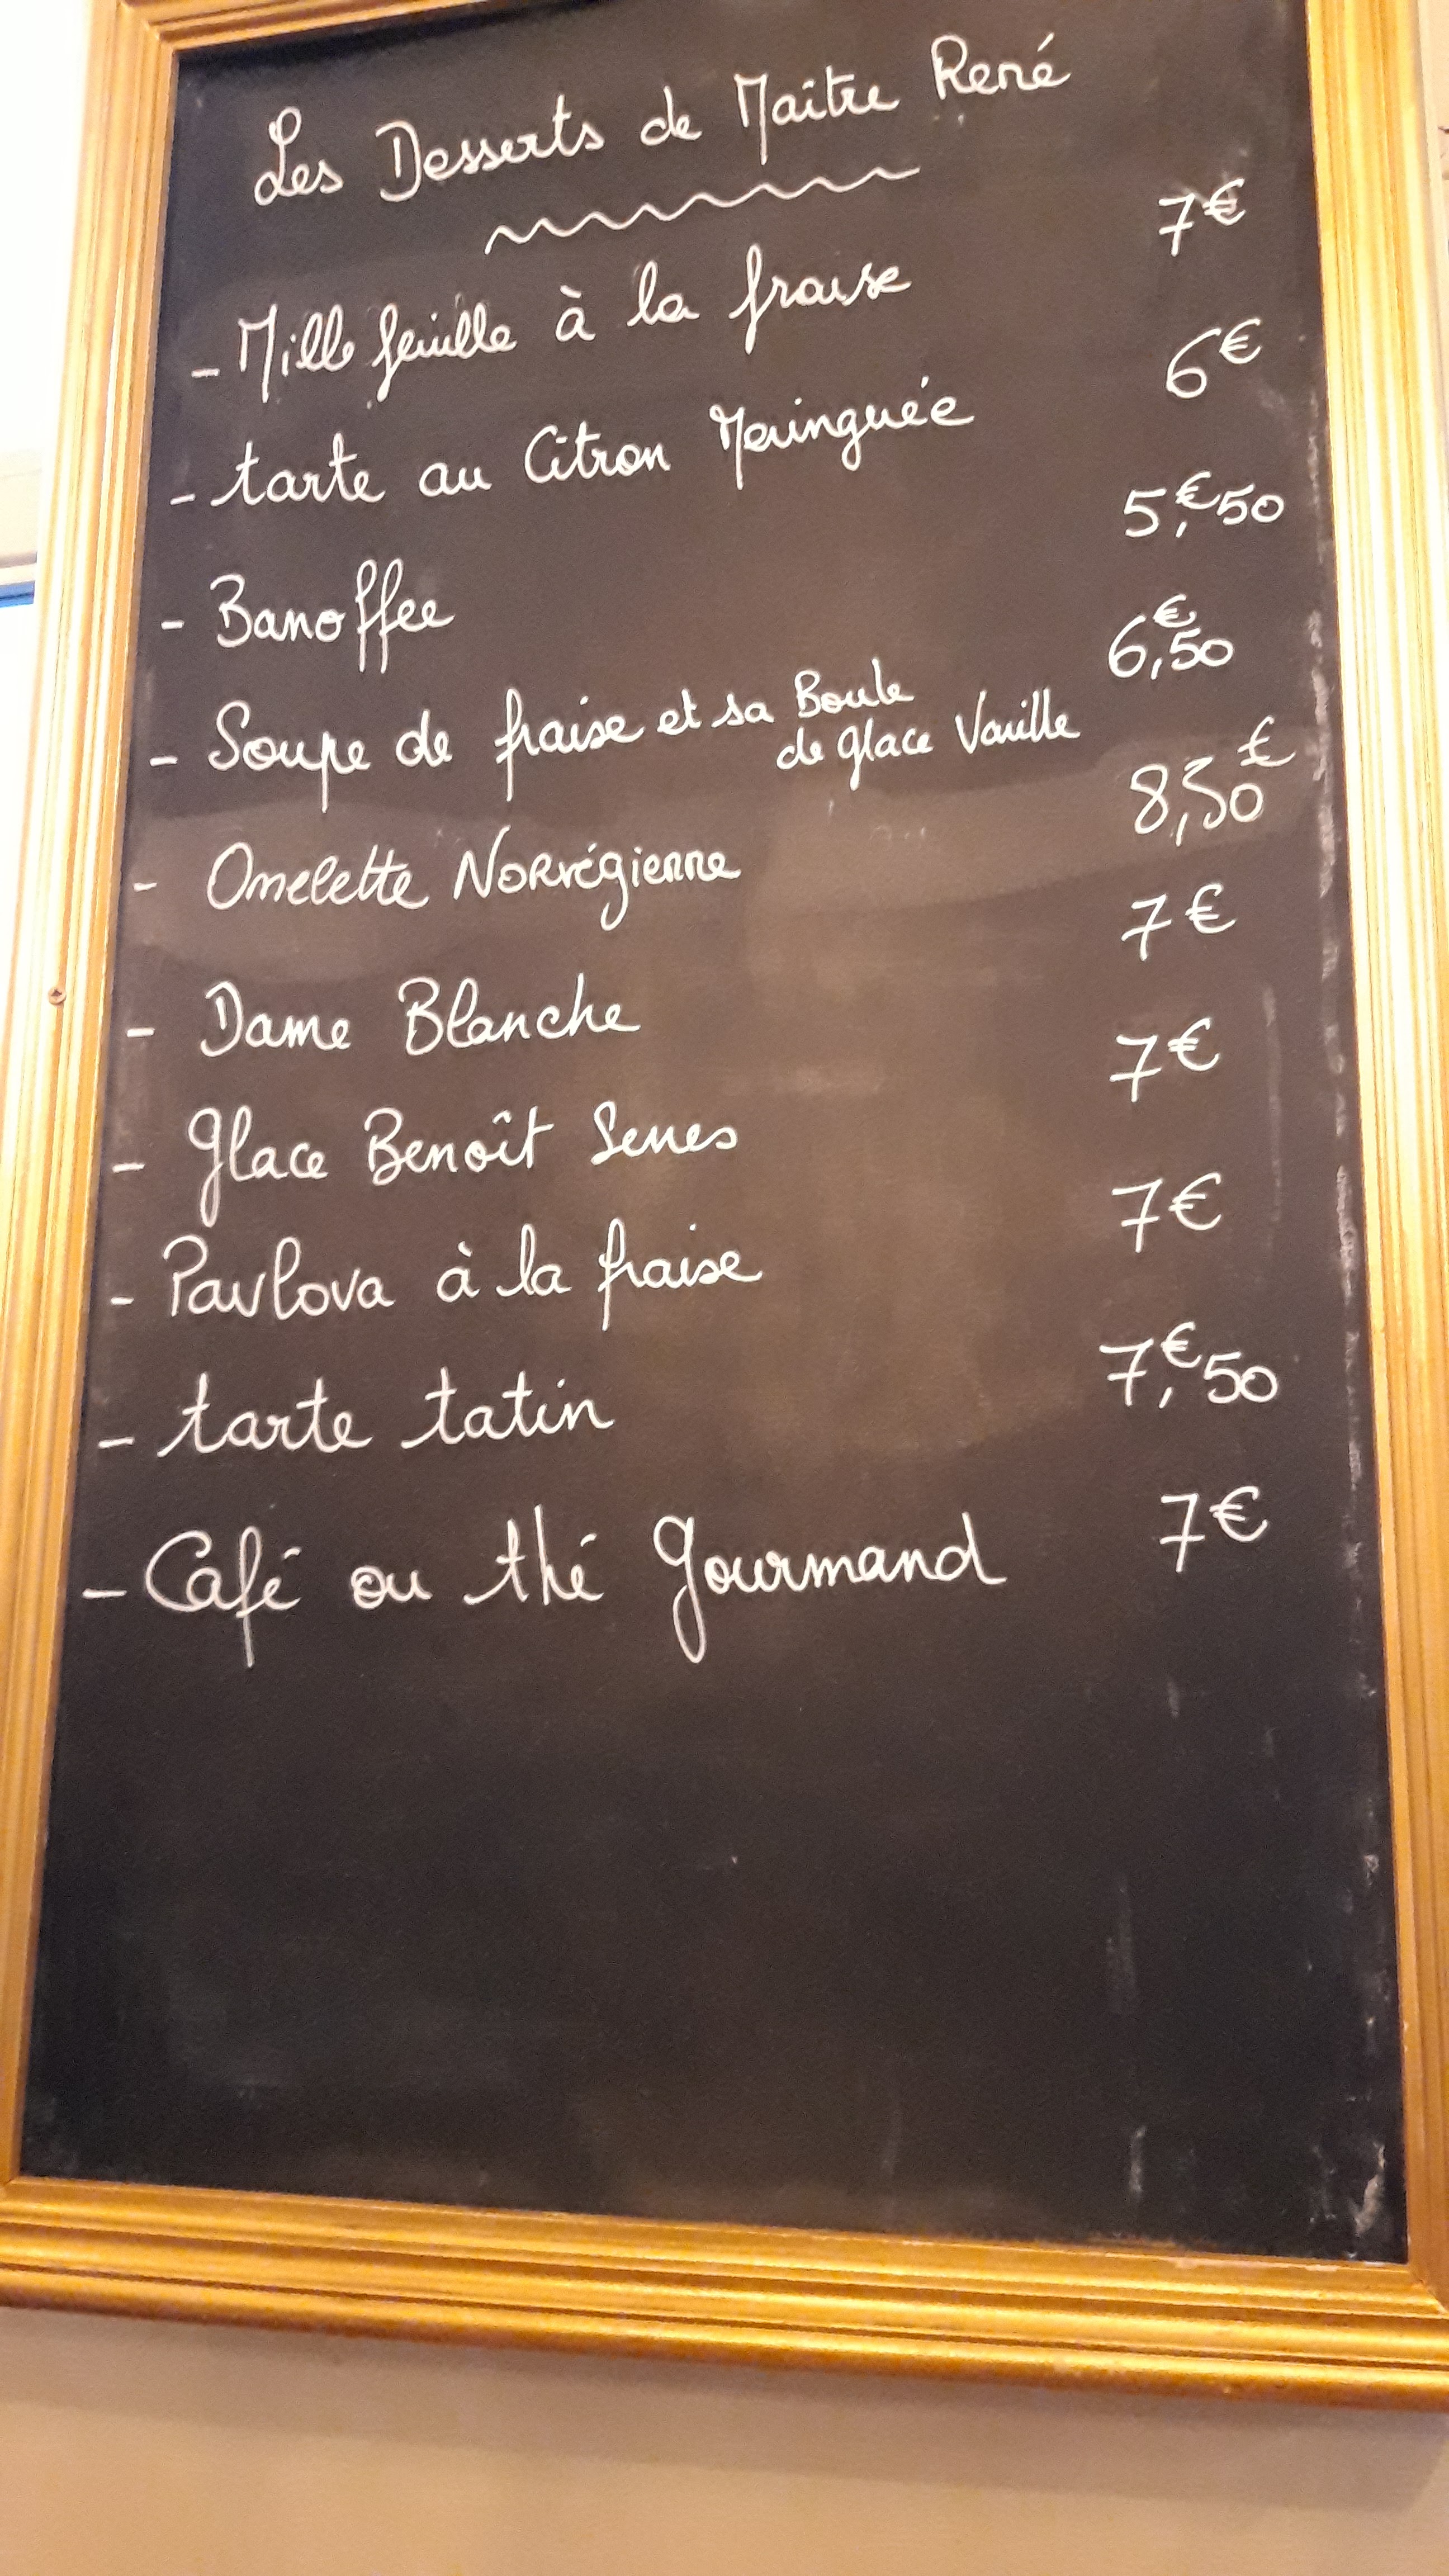 Les Desserts de Maître René
- Mille feuille à la fraise 7€
- tarte au Citron Meringuée 6€
- Banoffee 5,€50
- Soupe de fraise et sa Boule 6,€50
de glace Vanille
- Omelette Norvégienne 8,50€
- Dame Blanche 7€
- Glace Benoît Serres 7€
- Pavlova à la fraise 7€
- tarte tatin 7,€50
- Café ou thé Gourmand 7€